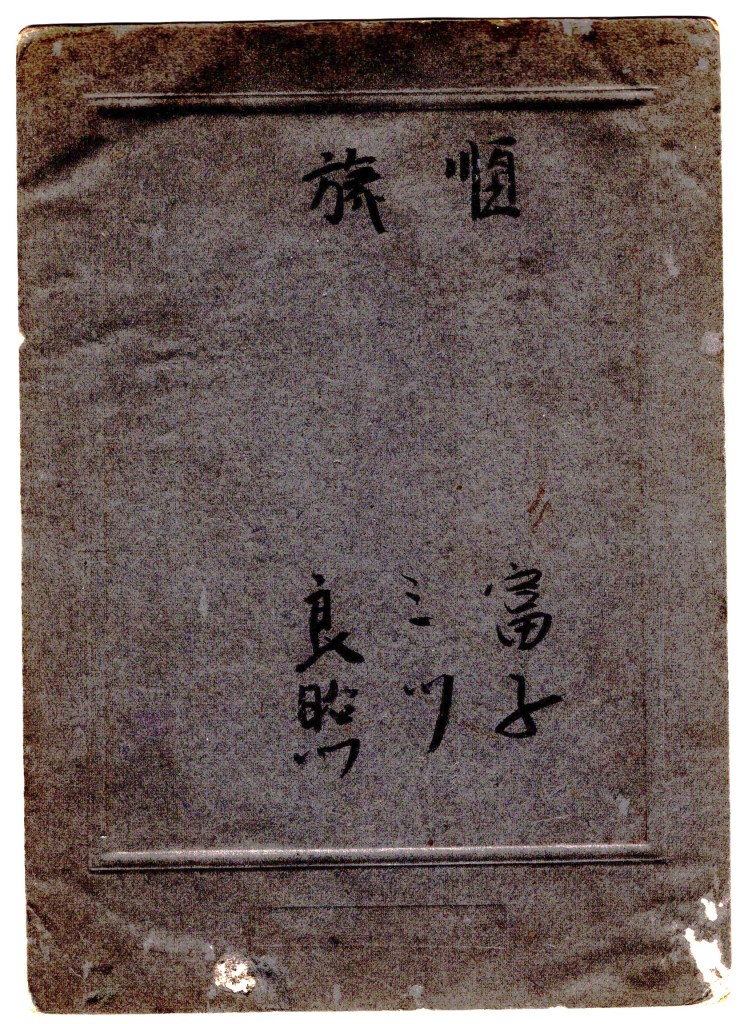 旅順
富子
ミツ
良照